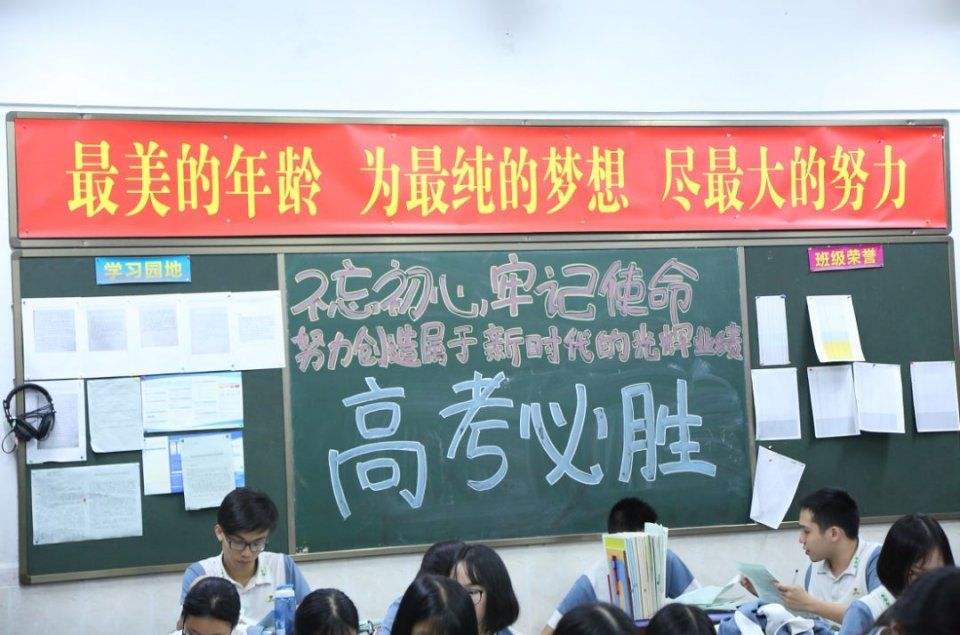 最美的年龄 为最纯的梦想 尽最大的努力
学习园地
班级荣誉
不忘初心,牢记使命
努力创造属于新时代的光辉业绩
高考必胜